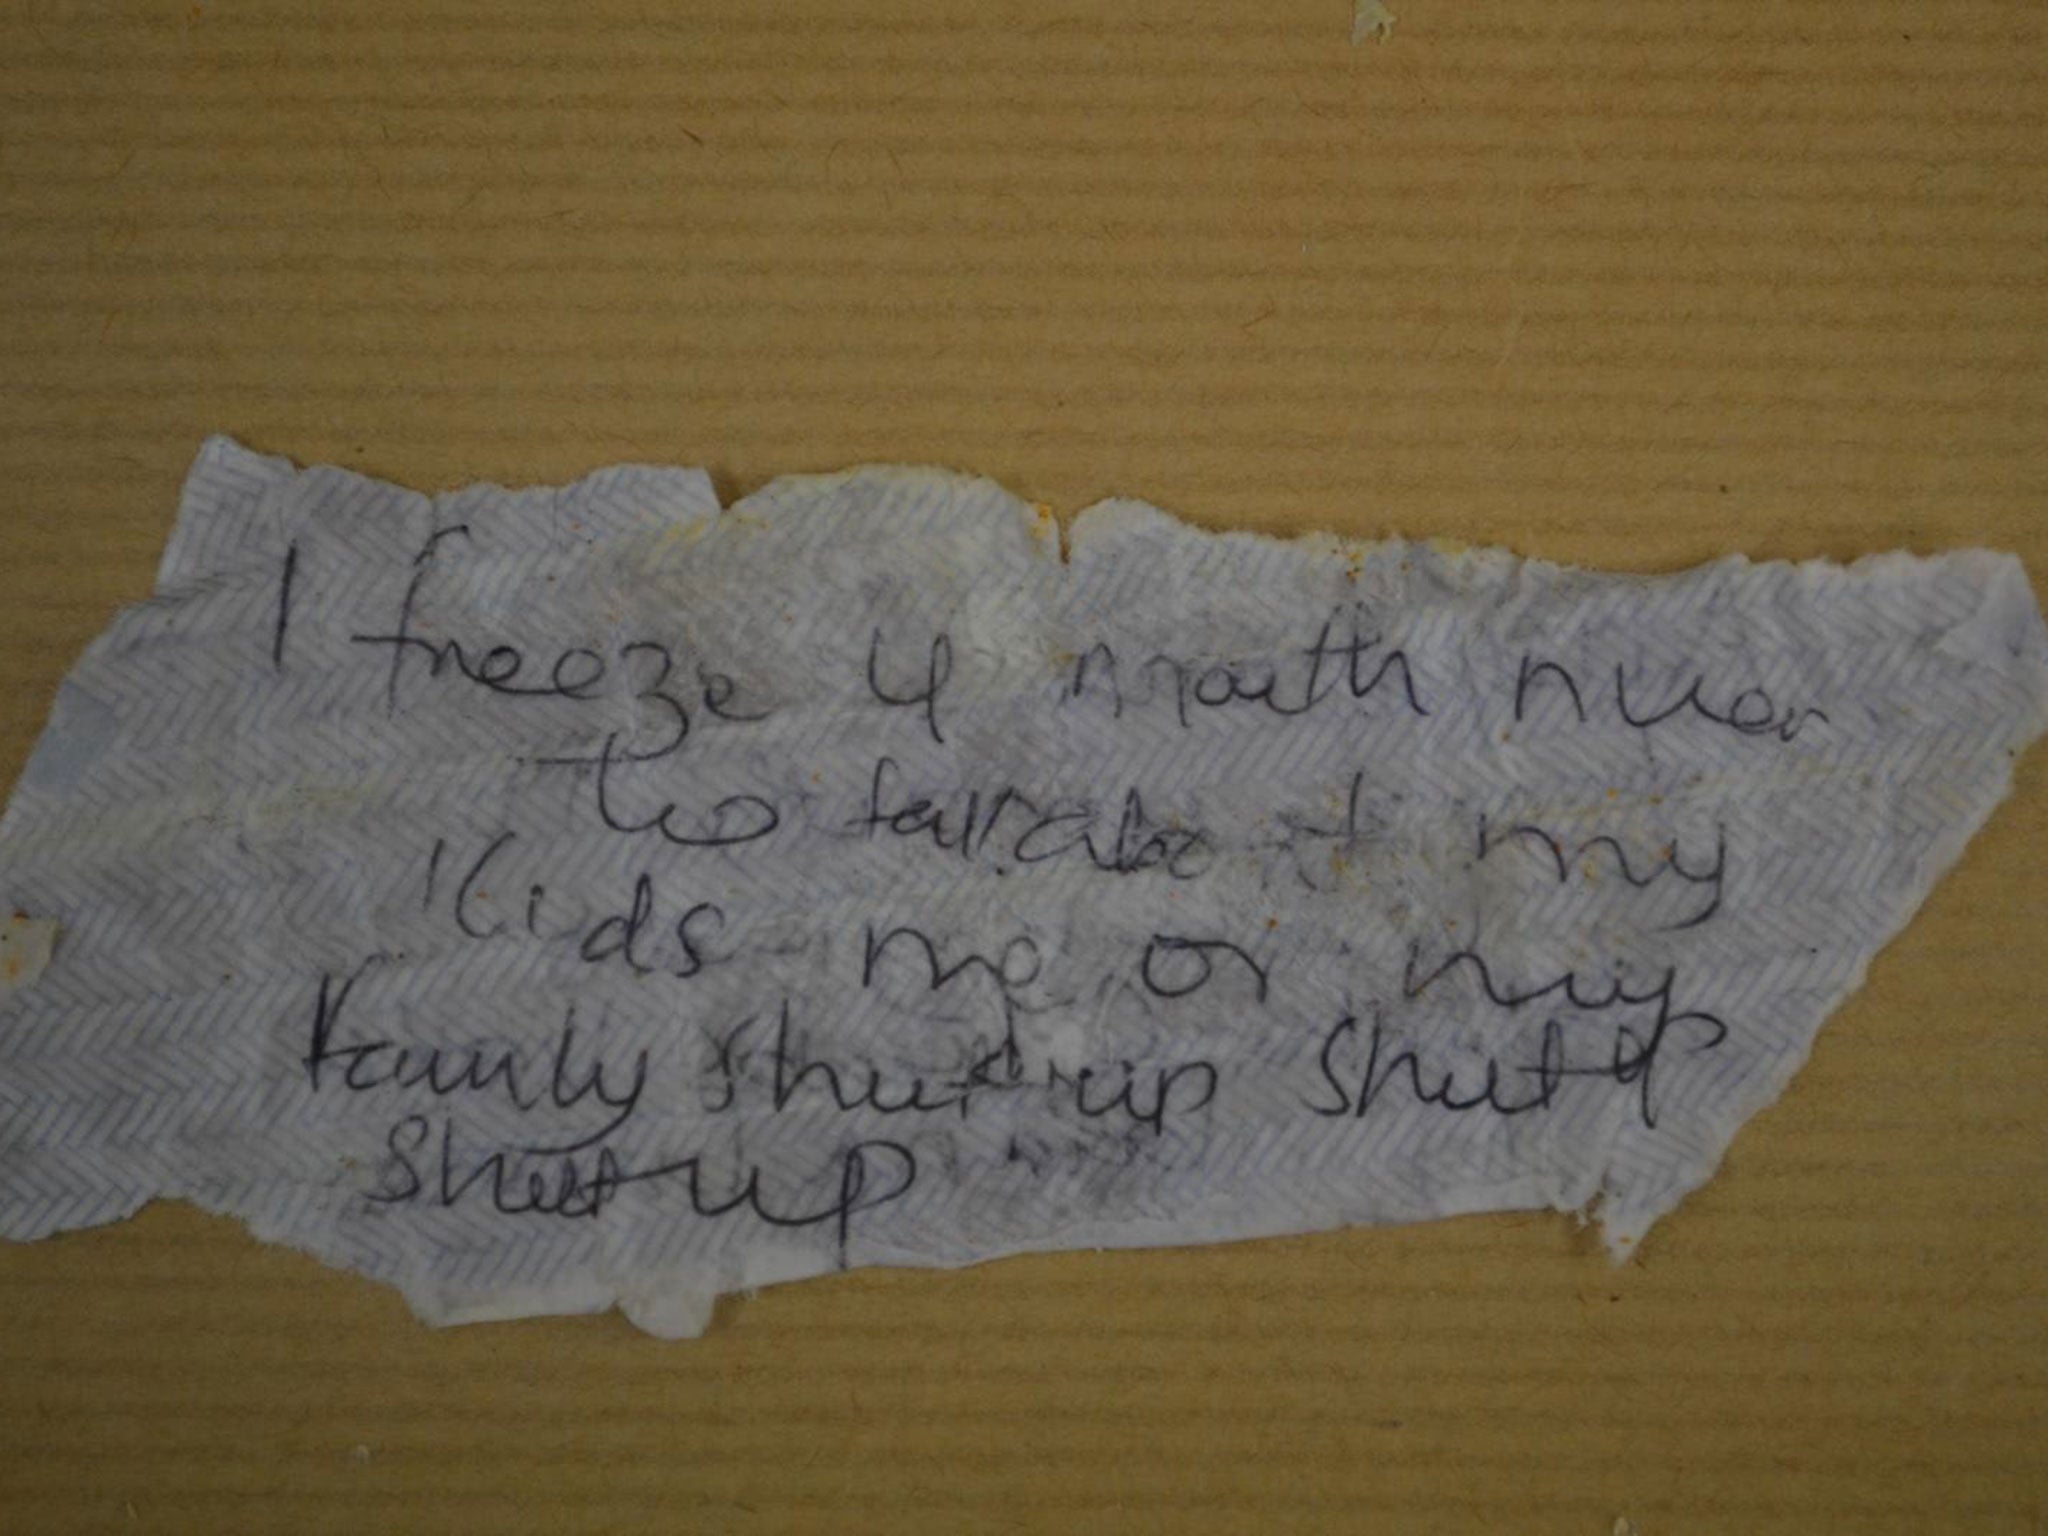 I freeze 4 mouth nuer
to talk about my
Kids me or my
family shut up shut up
shut up